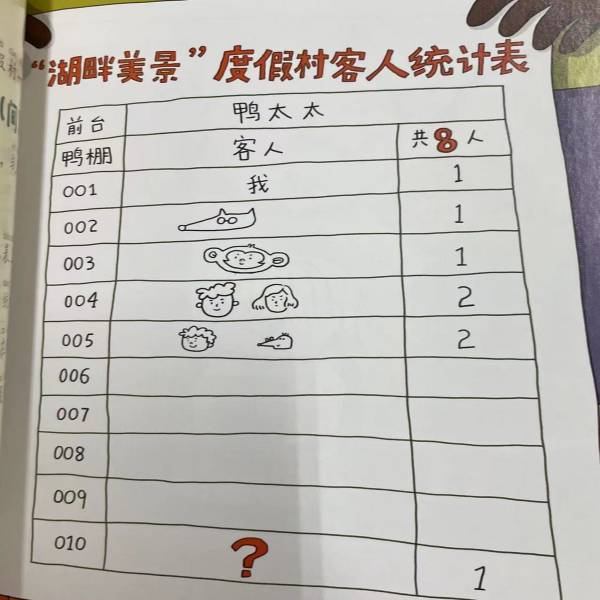 “湖畔美景”度假村客人统计表
前台 鸭太太
鸭棚 客人 共8人
001 我 1
002 1
003 1
004 2
005 2
006
007
008
009
010 ? 1